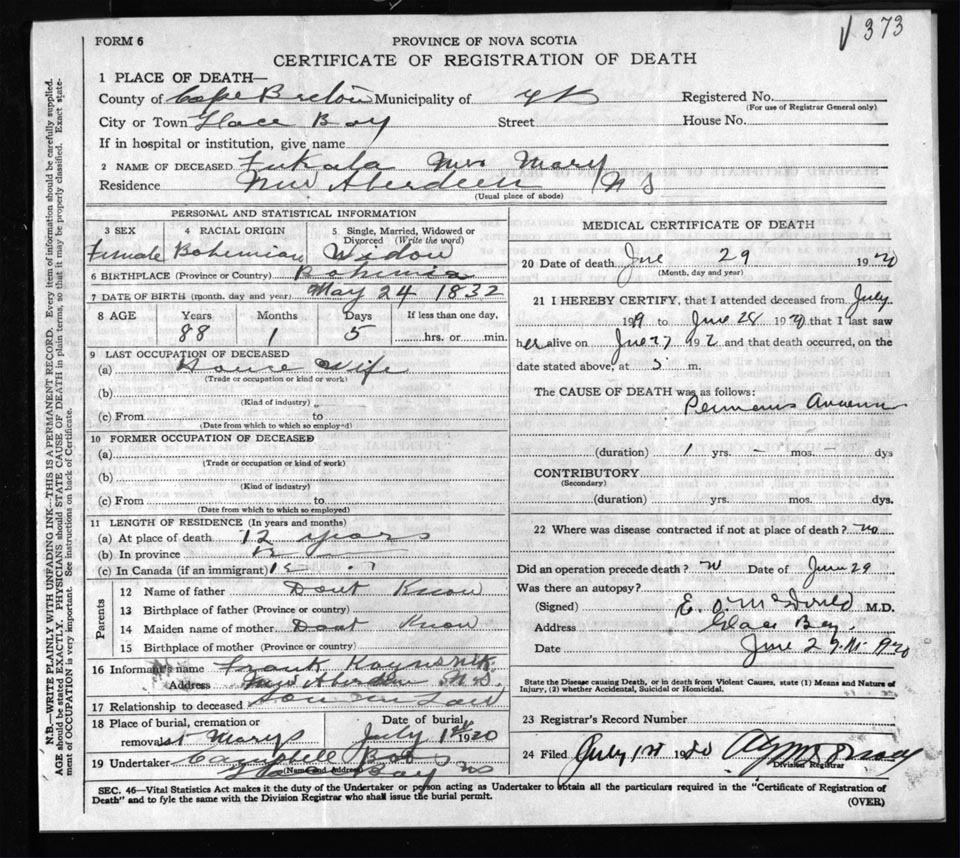 √ 373
FORM 6
PROVINCE OF NOVA SCOTIA
CERTIFICATE OF REGISTRATION OF DEATH
N.B.—WRITE PLAINLY WITH UNFADING INK—THIS IS A PERMANENT RECORD. Every item of information should be carefully supplied.
AGE should be stated EXACTLY. PHYSICIANS should STATE CAUSE OF DEATH in plain terms, so that it may be properly classified. Exact state-
ment of OCCUPATION is very important. See instructions on back of Certificate.
1 PLACE OF DEATH—
County of Cape Breton Municipality of Registered No.
(For use of Registrar General only)
City or Town Glace Bay Street House No.
If in hospital or institution, give name
2 NAME OF DECEASED Mrs Mary
Residence New Aberdeen N S
(Usual place of abode)
PERSONAL AND STATISTICAL INFORMATION
3 SEX 4 RACIAL ORIGIN 5 Single, Married, Widowed or
Divorced (Write the word)
Female Bohemian Widow
6 BIRTHPLACE (Province or Country) Bohemia
7 DATE OF BIRTH (month, day and year) May 24 1832
8 AGE Years Months Days If less than one day,
88 1 5 hrs. or min.
9 LAST OCCUPATION OF DECEASED
(a) House Wife
(Trade or occupation or kind or work)
(b)
(Kind of industry)
(c) From to
(Date from which to which so employed)
10 FORMER OCCUPATION OF DECEASED
(a)
(Trade or occupation or kind of work)
(b)
(Kind of industry)
(c) From to
(Date from which to which so employed)
11 LENGTH OF RESIDENCE (In years and months)
(a) At place of death 12 years
(b) In province 12
(c) In Canada (if an immigrant) 12
Parents
12 Name of father Dont Know
13 Birthplace of father (Province or country)
14 Maiden name of mother Dont Know
15 Birthplace of mother (Province or country)
16 Informant's name Frank
Address New Aberdeen N.S.
17 Relationship to deceased Son in Law
18 Place of burial, cremation or Date of burial
removal St Marys July 1st 1920
19 Undertaker Campbell
(Name and Address) Glace Bay NS
MEDICAL CERTIFICATE OF DEATH
20 Date of death June 29 1920
(Month, day and year)
21 I HEREBY CERTIFY, that I attended deceased from July
1919 to June 28 1920 that I last saw
her alive on June 27 192 and that death occurred, on the
date stated above, at 5 m.
The CAUSE OF DEATH was as follows:
(duration) 1 yrs. - mos. - dys
CONTRIBUTORY
(Secondary)
(duration) yrs. mos. dys.
22 Where was disease contracted if not at place of death? no
Did an operation precede death? no Date of June 29
Was there an autopsy?
(Signed) E. M.D.
Address Glace Bay
Date June 29 1920
State the Disease causing Death, or in death from Violent Causes, state (1) Means and Nature of
Injury, (2) whether Accidental, Suicidal or Homicidal.
23 Registrar's Record Number
24 Filed July 1st 1920
Division Registrar
SEC. 46—Vital Statistics Act makes it the duty of the Undertaker or person acting as Undertaker to obtain all the particulars required in the "Certificate of Registration of
Death" and to fyle the same with the Division Registrar who shall issue the burial permit.
(OVER)